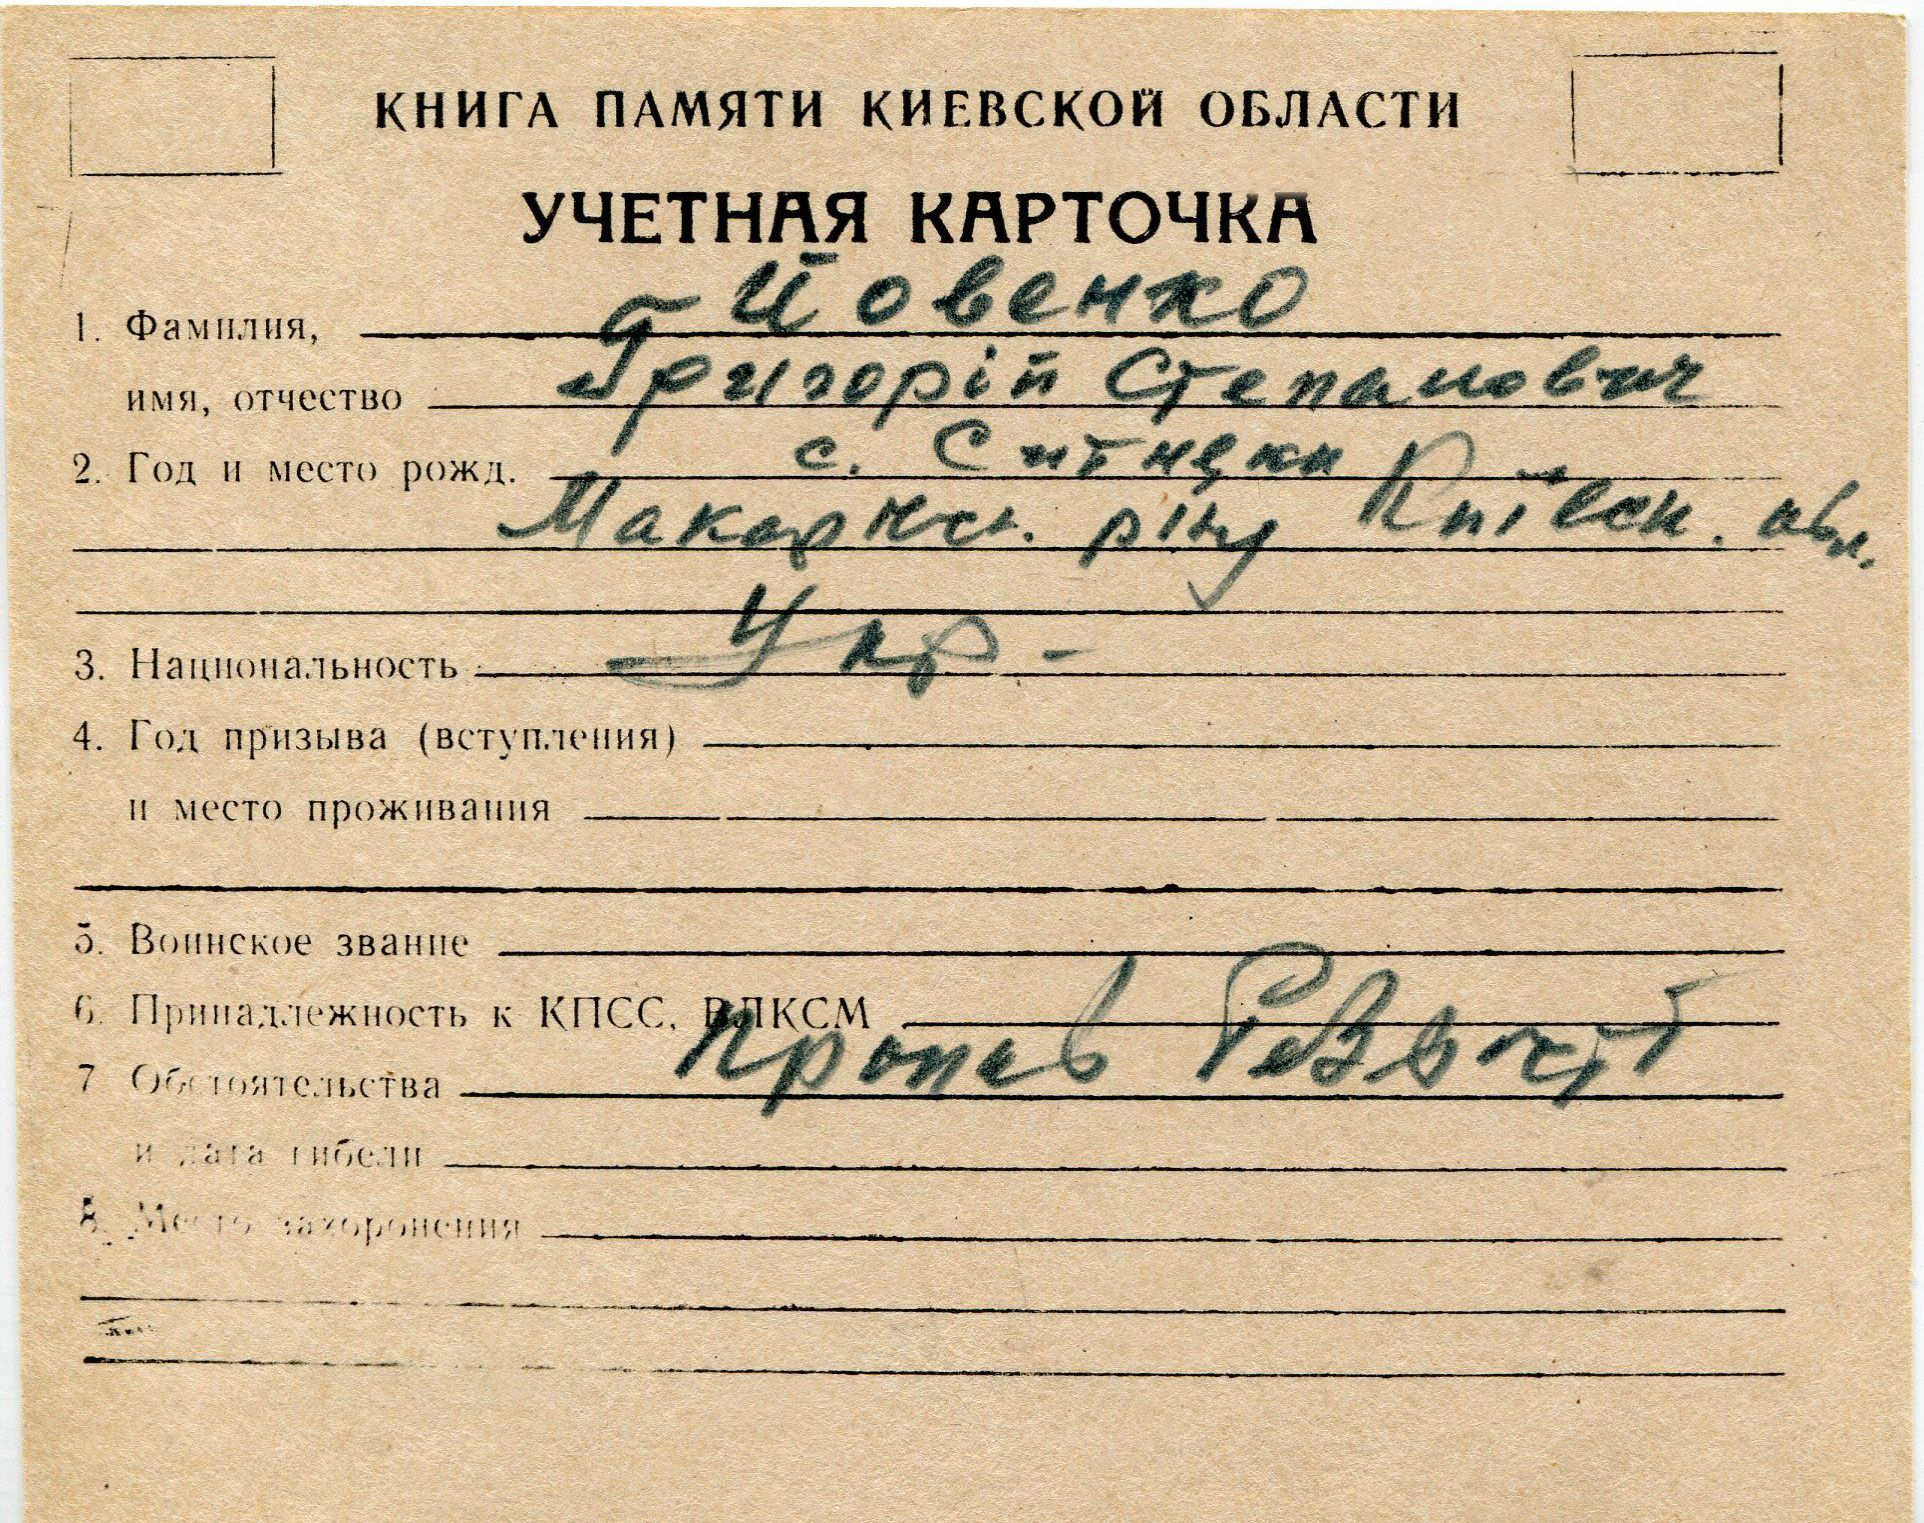 КНИГА ПАМЯТИ КИЕВСКОЙ ОБЛАСТИ
УЧЕТНАЯ КАРТОЧКА
1. Фамилия, Йовенко
имя, отчество Григорій Степанович
2. Год и место рожд. с. Ситняки
Макарівс. р-ну Київск. обл.
3. Национальность Укр-
4. Год призыва (вступления)
и место проживания
5. Воинское звание
6. Принадлежность к КПСС, ВЛКСМ
7 Обстоятельства Пропав безвісті
и дата гибели
8. Место захоронения